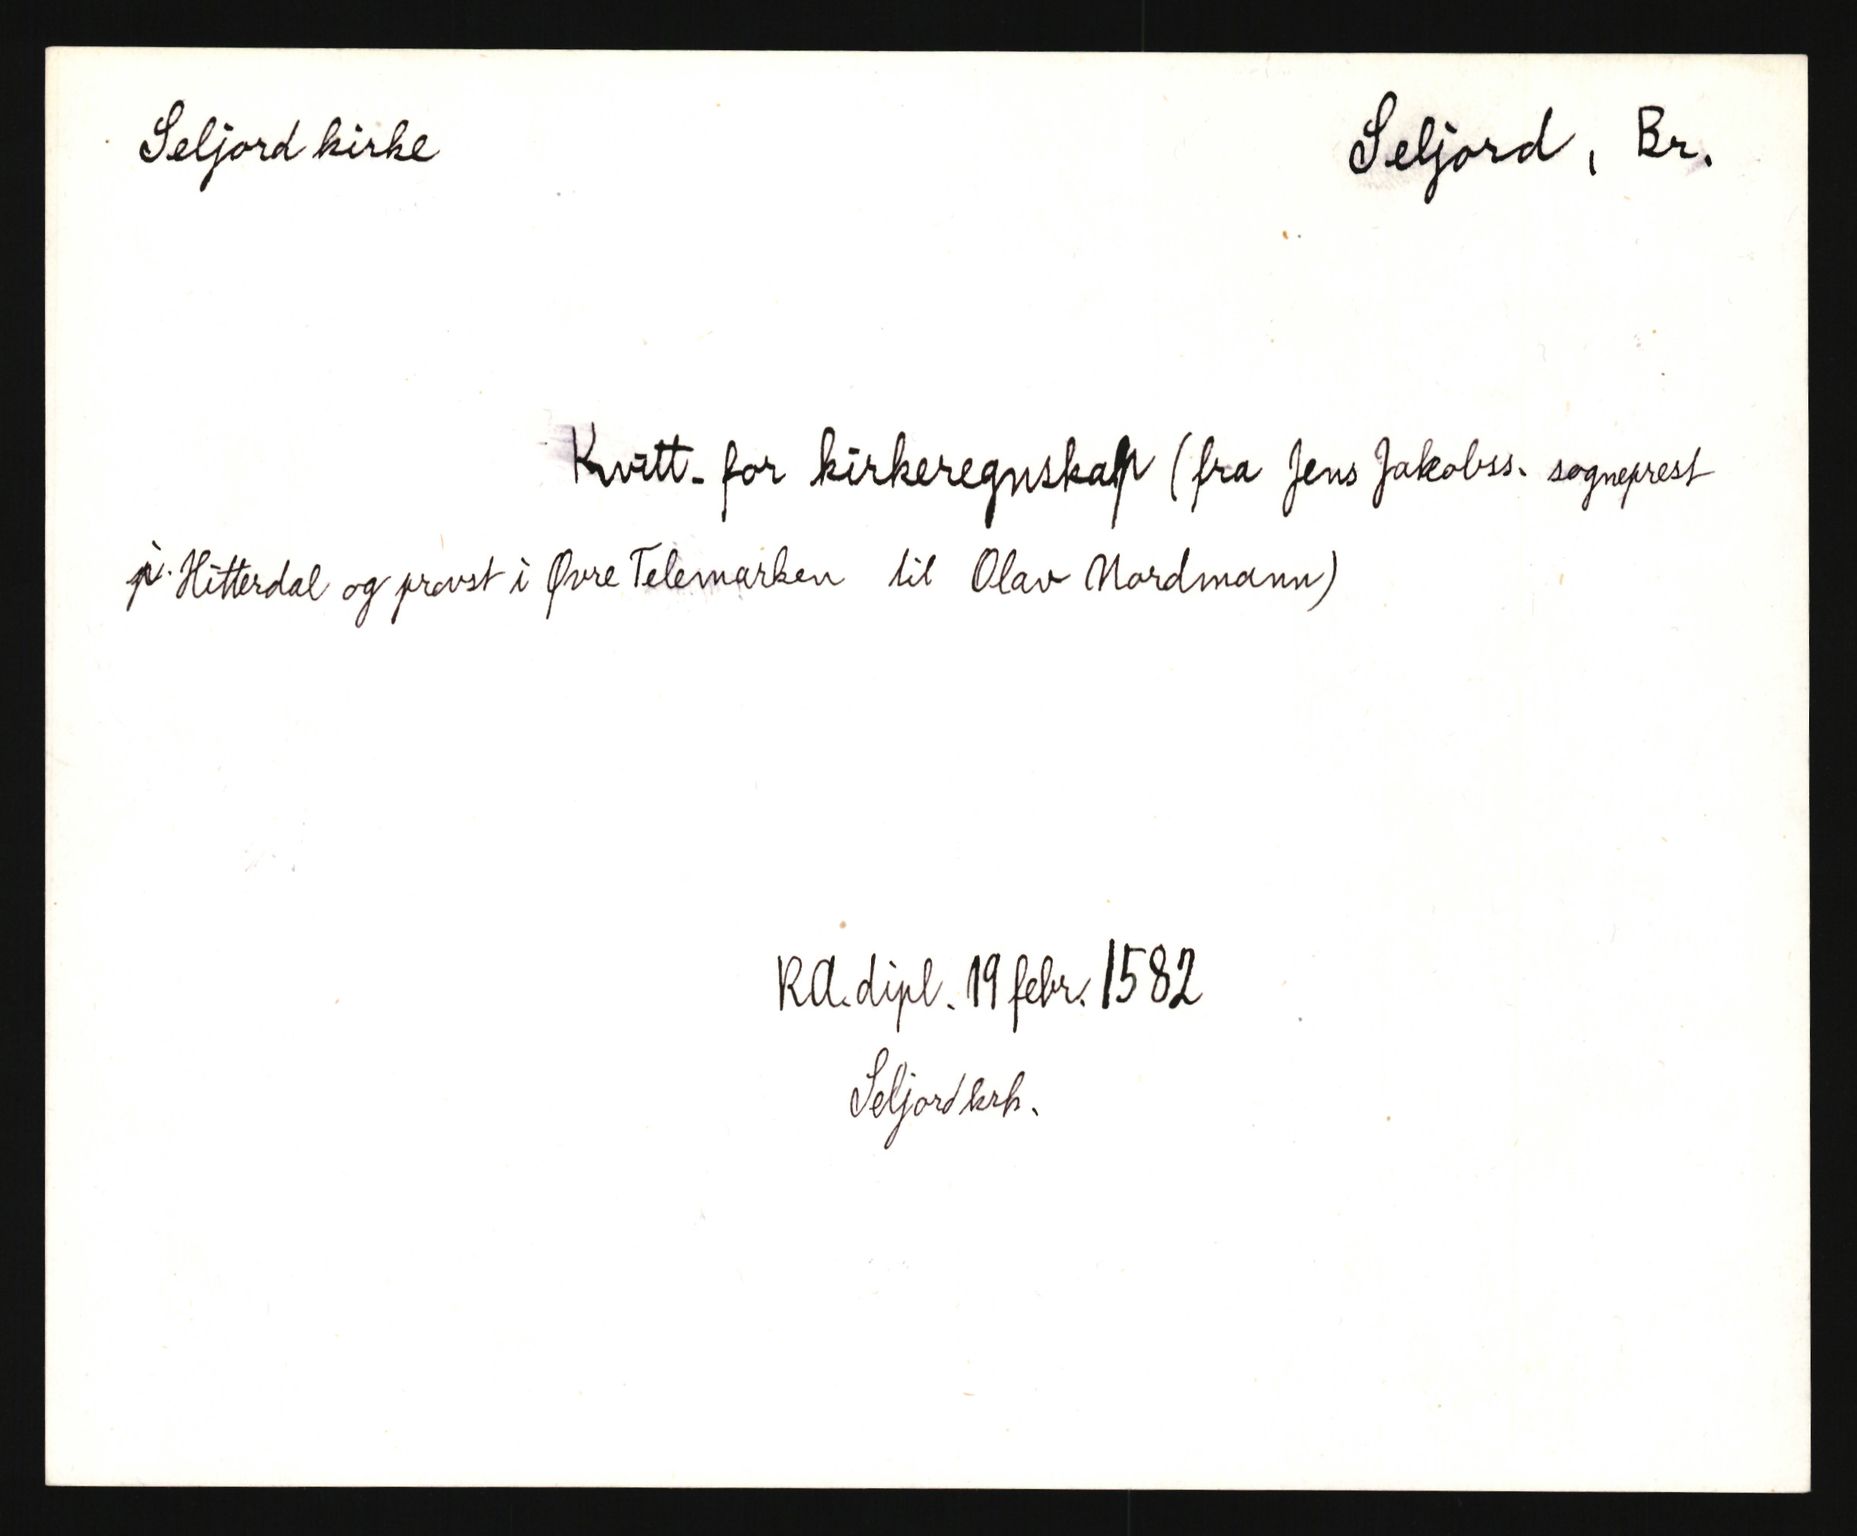 Seljord kirke
Seljord, Br.
Kvitt. for kirkeregnskap (fra Jens Jakobss. sogneprest
på Hitterdal og provst i Øvre Telemarken til Olav Nordmann)
RA. dipl. 19 febr. 1582
Seljord krk.